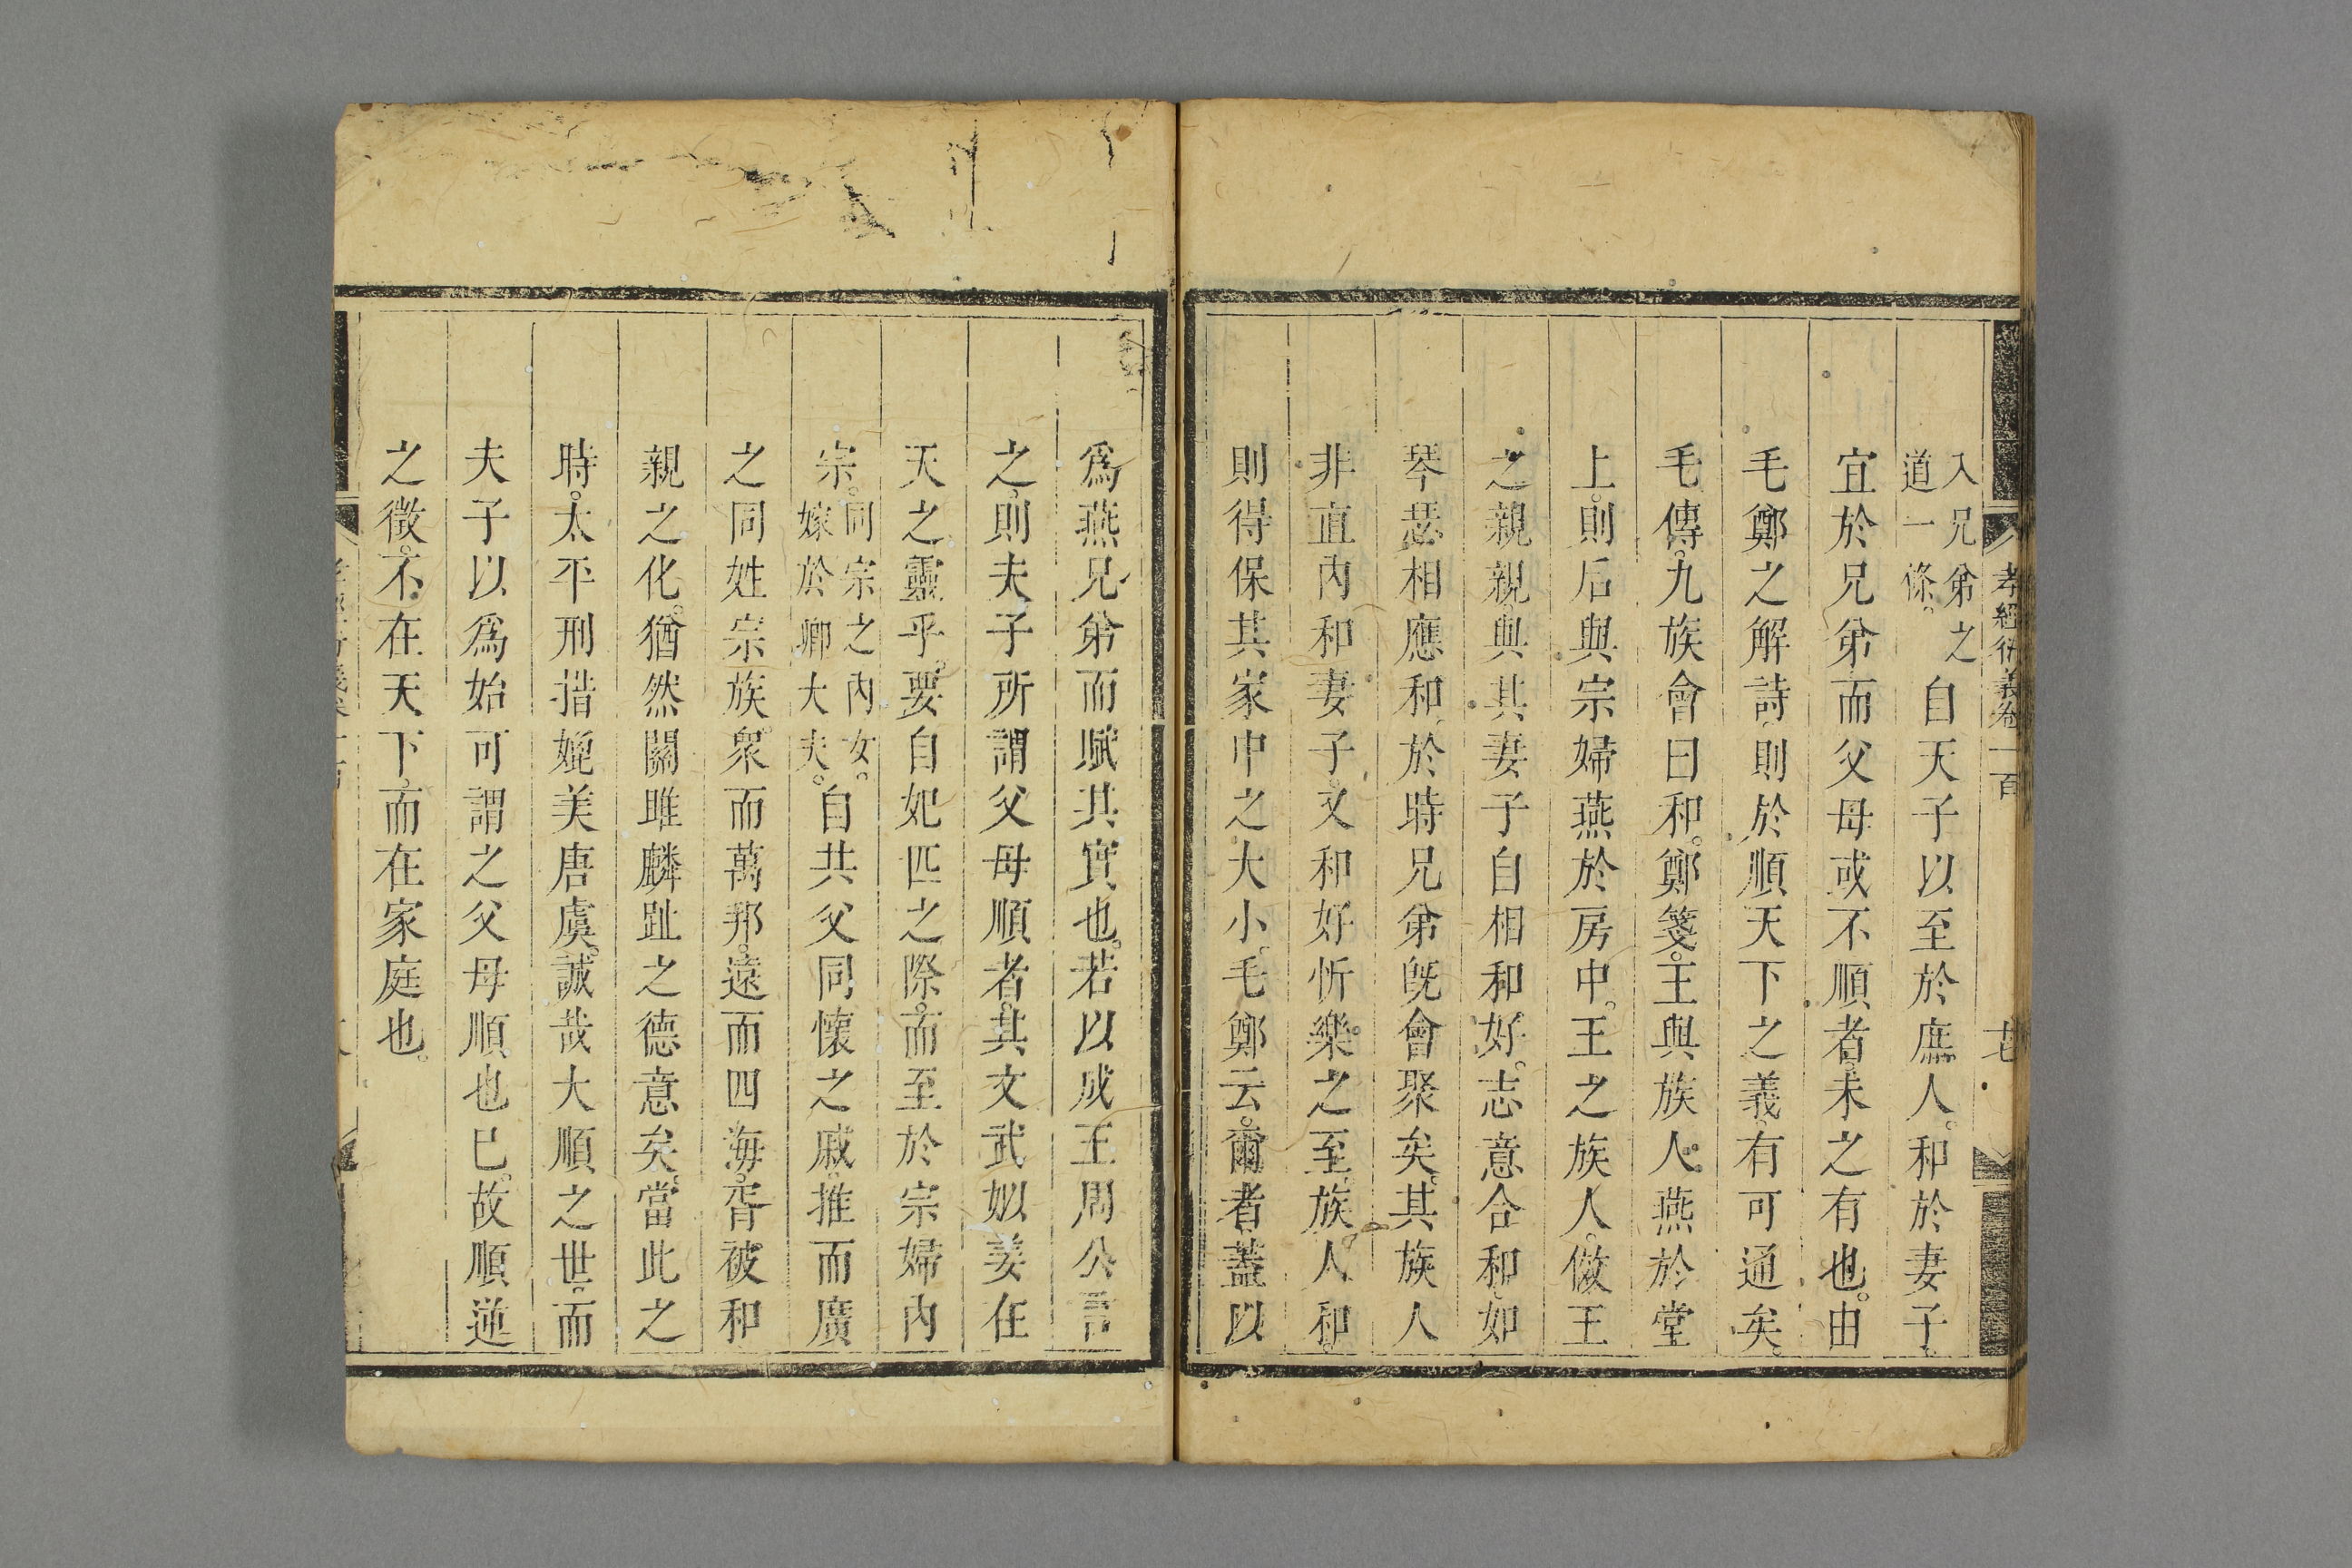 孝經衍義卷一百
入兄弟之
道一條。
自天子以至於庶人。和於妻子。
宜於兄弟而父母或不順者。未之有也。由
毛鄭之解詩。則於順天下之義。有可通矣。
毛傳。九族會曰和。鄭箋。王與族人。燕於堂
上。則后與宗婦燕於房中。王之族人。倣王
之親親。與其妻子自相和好。志意合和。如
琴瑟相應和。於時兄弟旣會聚矣。其族人
非直內和妻子。又和好忻樂。之至族人和。
則得保其家中之大小。毛鄭云。爾者。蓋以
爲燕兄弟而賦其實也。若以成王周公言
之。則夫子所謂父母順者。其文武姒姜在
天之靈乎。要自妃匹之際。而至於宗婦內
宗。
同宗之內女。
嫁於卿大夫。
自共父同懷之戚。推而廣
之同姓宗族。衆而萬邦。遠而四海。胥被和
親之化。猶然關雎麟趾之德意矣。當此之
時。太平刑措。媲美唐虞。誠哉大順之世。而
夫子以爲始可謂之父母順也已。故順逆
之徵。不在天下。而在家庭也。